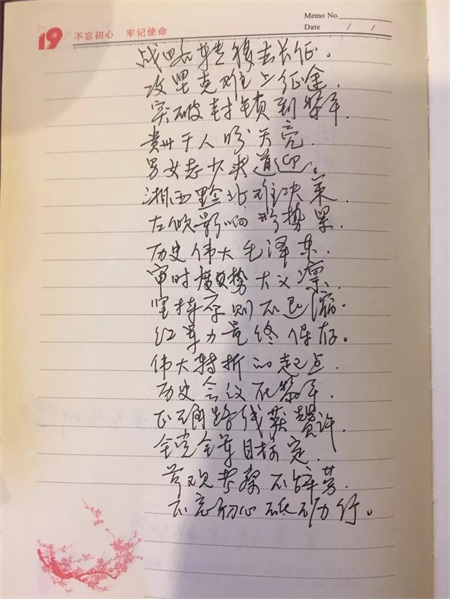 19 不忘初心 牢记使命
Memo No.
Date / /
战略转移去长征.
攻坚克难上征途.
突破封锁到黎平.
贵州干人盼天亮
男女老少夹道迎。
湘西黔北难决策
左倾影响形势
历史伟大毛泽东.
审时度势大义凛.
坚持原则不退缩.
红军力量终保存.
伟大转折的起点
历史会议在黎平.
正确路线获赞许
全党全军目标定.
参观考察不辞劳
不忘初心 行。